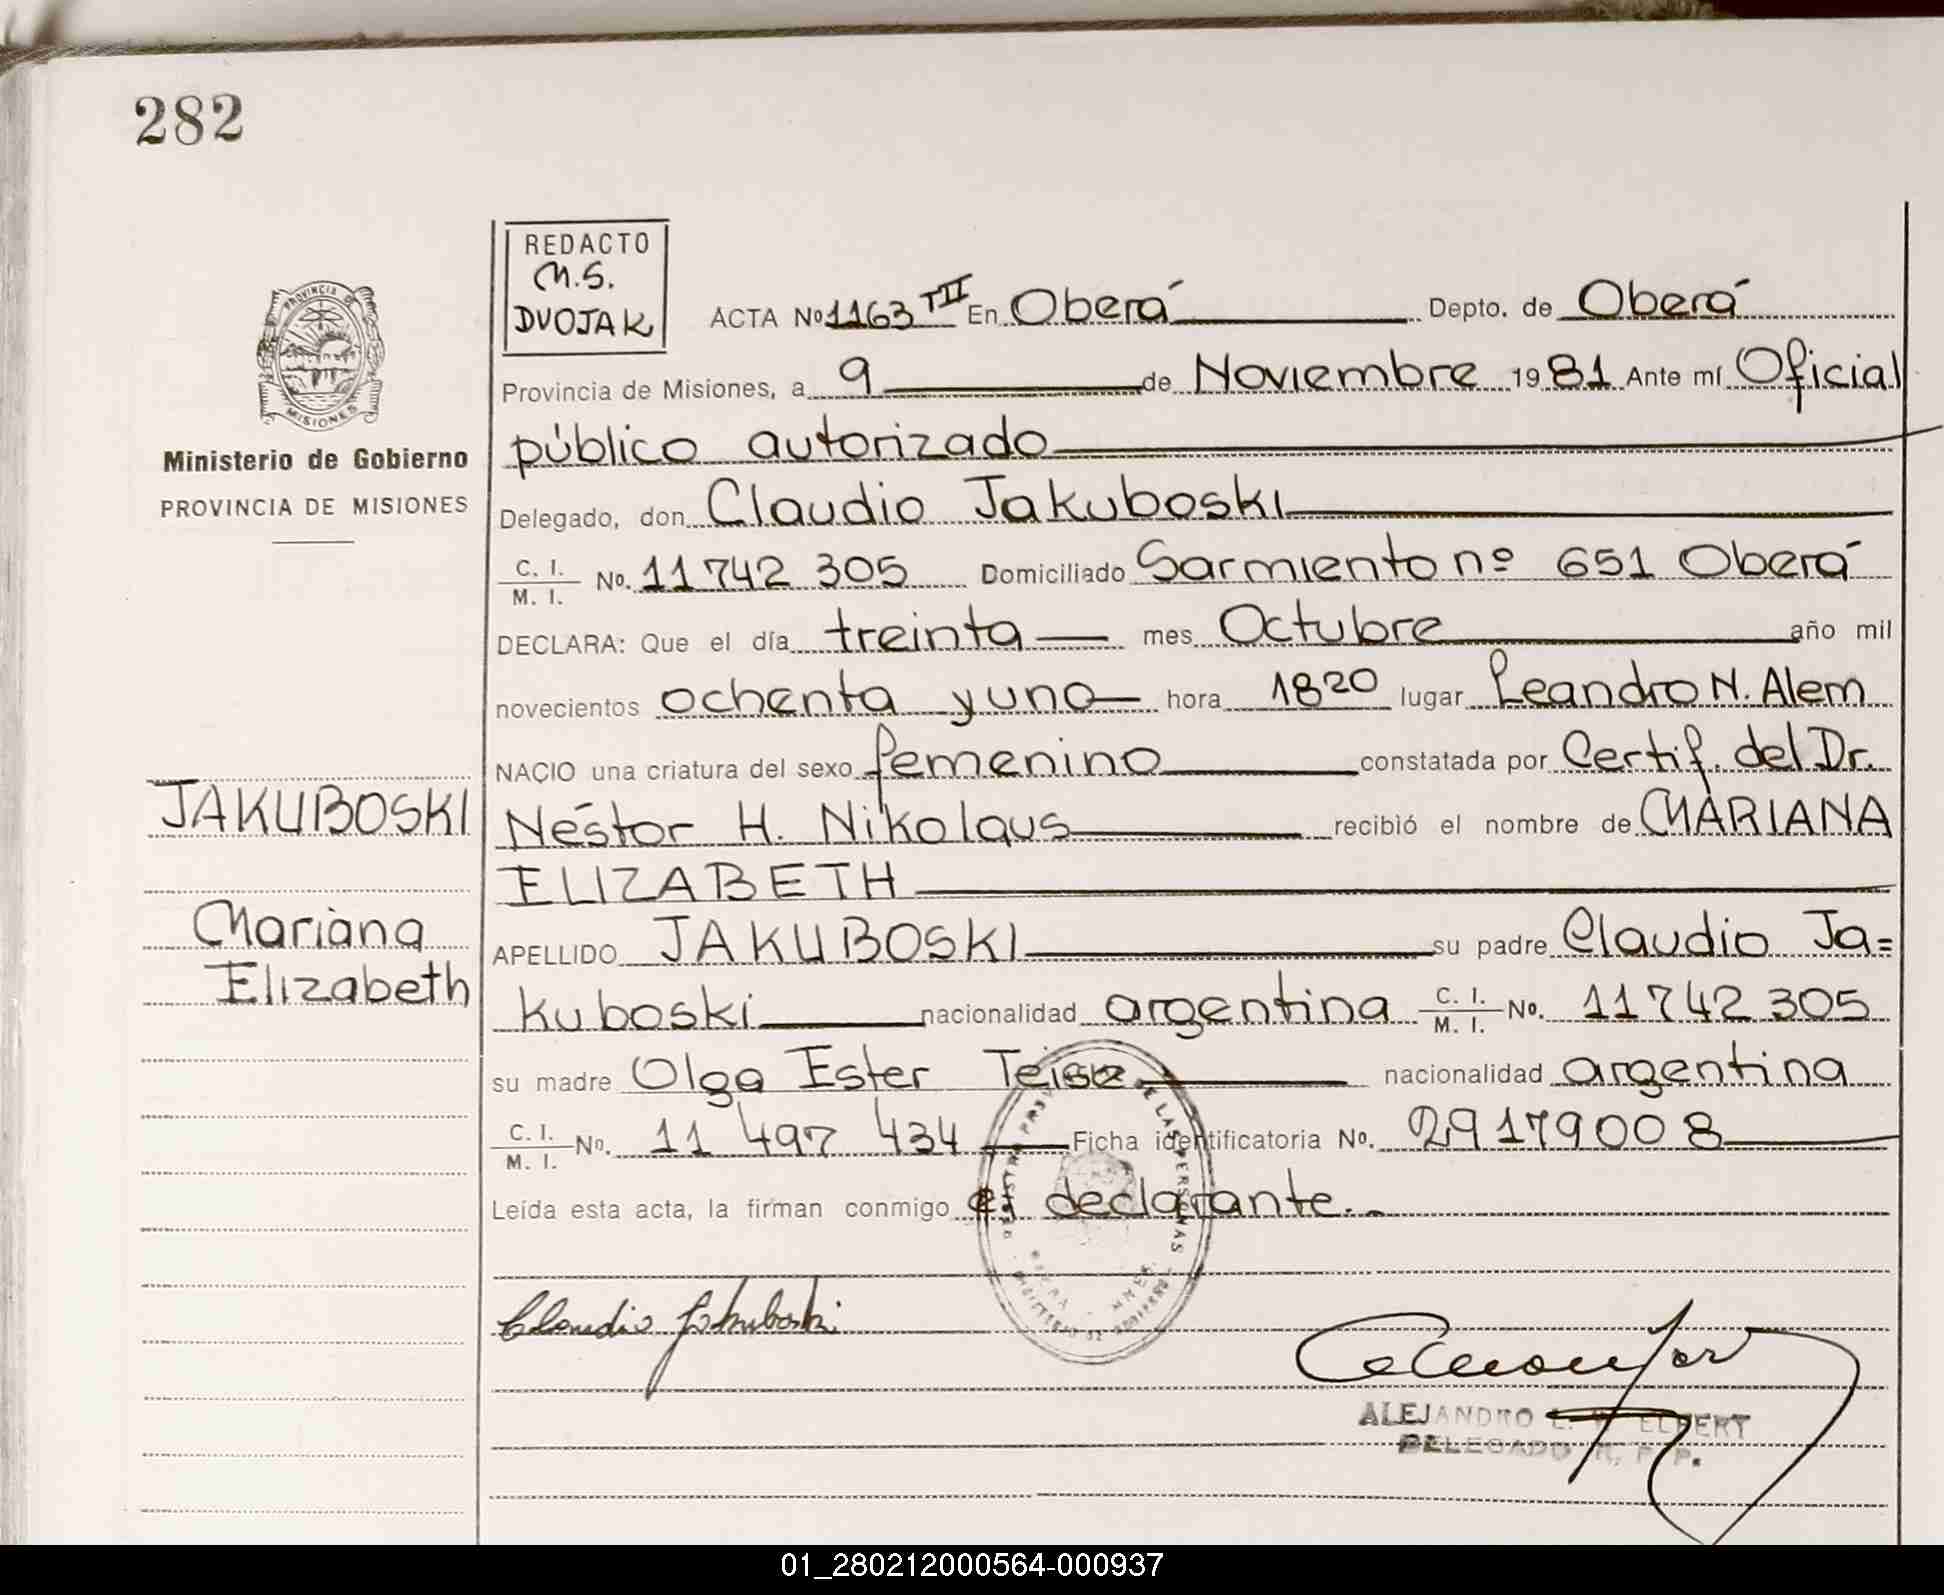 282
REDACTO
M.S.
DVOJAK
PROVINCIA DE
MISIONES
Ministerio de Gobierno
PROVINCIA DE MISIONES
JAKUBOSKI
Mariana
Elizabeth
ACTA Nº 1163 TIII En Oberá Depto. de Oberá
Provincia de Misiones, a 9 de Noviembre 1981 Ante mí Oficial
público autorizado
Delegado, don Claudio Jakuboski
C. I. / M. I. No. 11742 305 Domiciliado Sarmiento nº 651 Oberá
DECLARA: Que el día treinta mes Octubre año mil
novecientos ochenta y uno hora 1820 lugar Leandro N. Alem
NACIO una criatura del sexo femenino constatada por Certif. del Dr.
Néstor H. Nikolaus recibió el nombre de MARIANA
ELIZABETH
APELLIDO JAKUBOSKI su padre Claudio Ja=
kuboski nacionalidad argentina C. I. / M. I. No. 11742305
su madre Olga Ester nacionalidad argentina
C. I. / M. I. No. 11 497 434 Ficha identificatoria No. 29179008
Leída esta acta, la firman conmigo el declarante.
Claudio Jakuboski
ALEJANDRO
DELEGADO R. P. P.
01_280212000564-000937